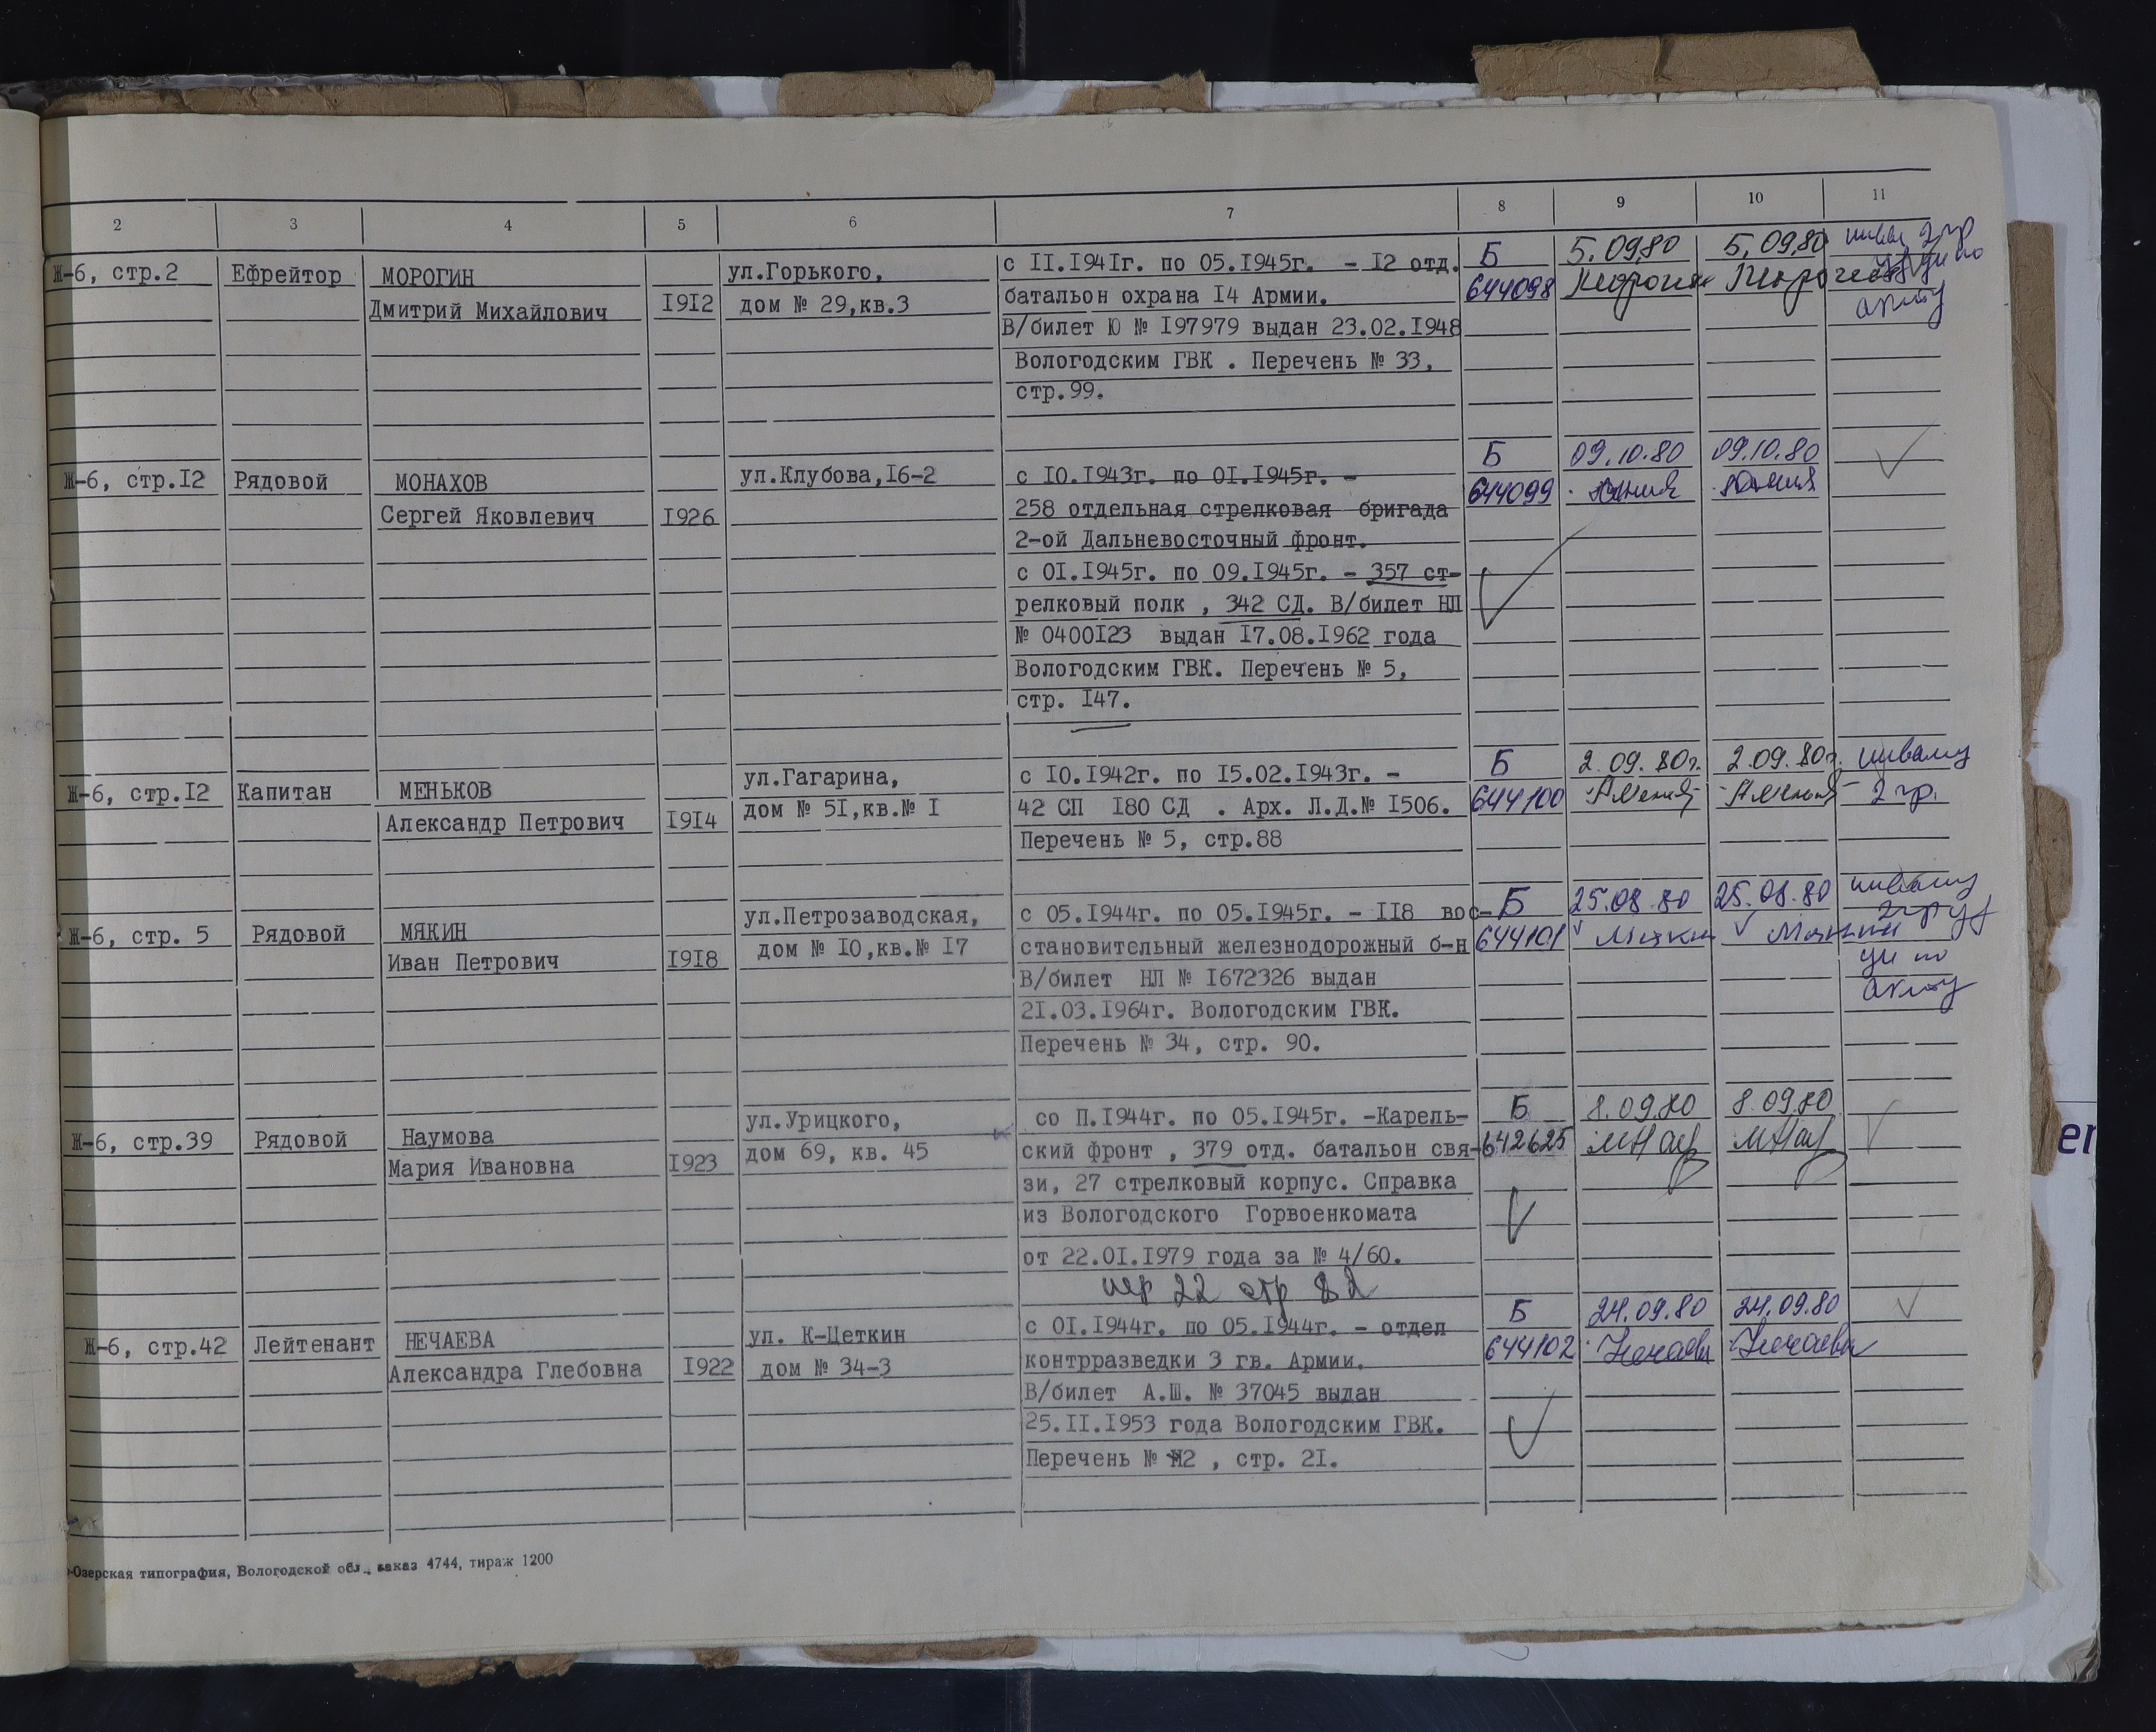 2 3 4 5 6 7 8 9 10 11
Ж-6, стр.2 Ефрейтор МОРОГИН ул.Горького, с II.I94Iг. по 05.I945г. - I2 отд. Б 5.09.80 5.09.80
Дмитрий Михайлович I9I2 дом № 29,кв.3 батальон охрана I4 Армии. 644098
акту
В/билет Ю № I97979 выдан 23.02.I948
Вологодским ГВК . Перечень № 33,
стр.99.
Ж-6, стр.I2 Рядовой МОНАХОВ ул.Клубова,I6-2 с I0.I943г. по 0I.I945г. - Б 09.10.80 09.10.80
Сергей Яковлевич I926 258 отдельная стрелковая бригада 644099
2-ой Дальневосточный фронт.
с 0I.I945г. по 09.I945г. - 357 ст-
релковый полк , 342 СД. В/билет НП
№ 0400I23 выдан I7.08.I962 года
Вологодским ГВК. Перечень № 5,
стр. I47.
Ж-6, стр.I2 Капитан МЕНЬКОВ ул.Гагарина, с I0.I942г. по I5.02.I943г. - Б 2.09.80г. 2.09.80г.
Александр Петрович I9I4 дом № 5I,кв.№ I 42 СП I80 СД . Арх. Л.Д.№ I506. 644100 2 гр.
Перечень № 5, стр.88
Ж-6, стр. 5 Рядовой МЯКИН ул.Петрозаводская, с 05.I944г. по 05.I945г. - II8 вос- Б 25.08.80 25.08.80
Иван Петрович I9I8 дом № I0,кв.№ I7 становительный железнодорожный б-н 644101 Мякин Мякин
В/билет НЛ № I672326 выдан
2I.03.I964г. Вологодским ГВК. акту
Перечень № 34, стр. 90.
Ж-6, стр.39 Рядовой Наумова ул.Урицкого, со П.I944г. по 05.I945г. -Карель- Б 8.09.80 8.09.80
Мария Ивановна I923 дом 69, кв. 45 ский фронт , 379 отд. батальон свя- 642625 МНау МНау
зи, 27 стрелковый корпус. Справка
из Вологодского Горвоенкомата
от 22.0I.I979 года за № 4/60.
пер 22 стр 82
Ж-6, стр.42 Лейтенант НЕЧАЕВА ул. К-Цеткин с 0I.I944г. по 05.I944г. - отдел Б 24.09.80 24.09.80
Александра Глебовна I922 дом № 34-3 контрразведки 3 гв. Армии. 644102 Нечаева Нечаева
В/билет А.Ш. № 37045 выдан
25.II.I953 года Вологодским ГВК.
Перечень № 2 , стр. 2I.
-Озерская типография, Вологодской обл., заказ 4744, тираж 1200